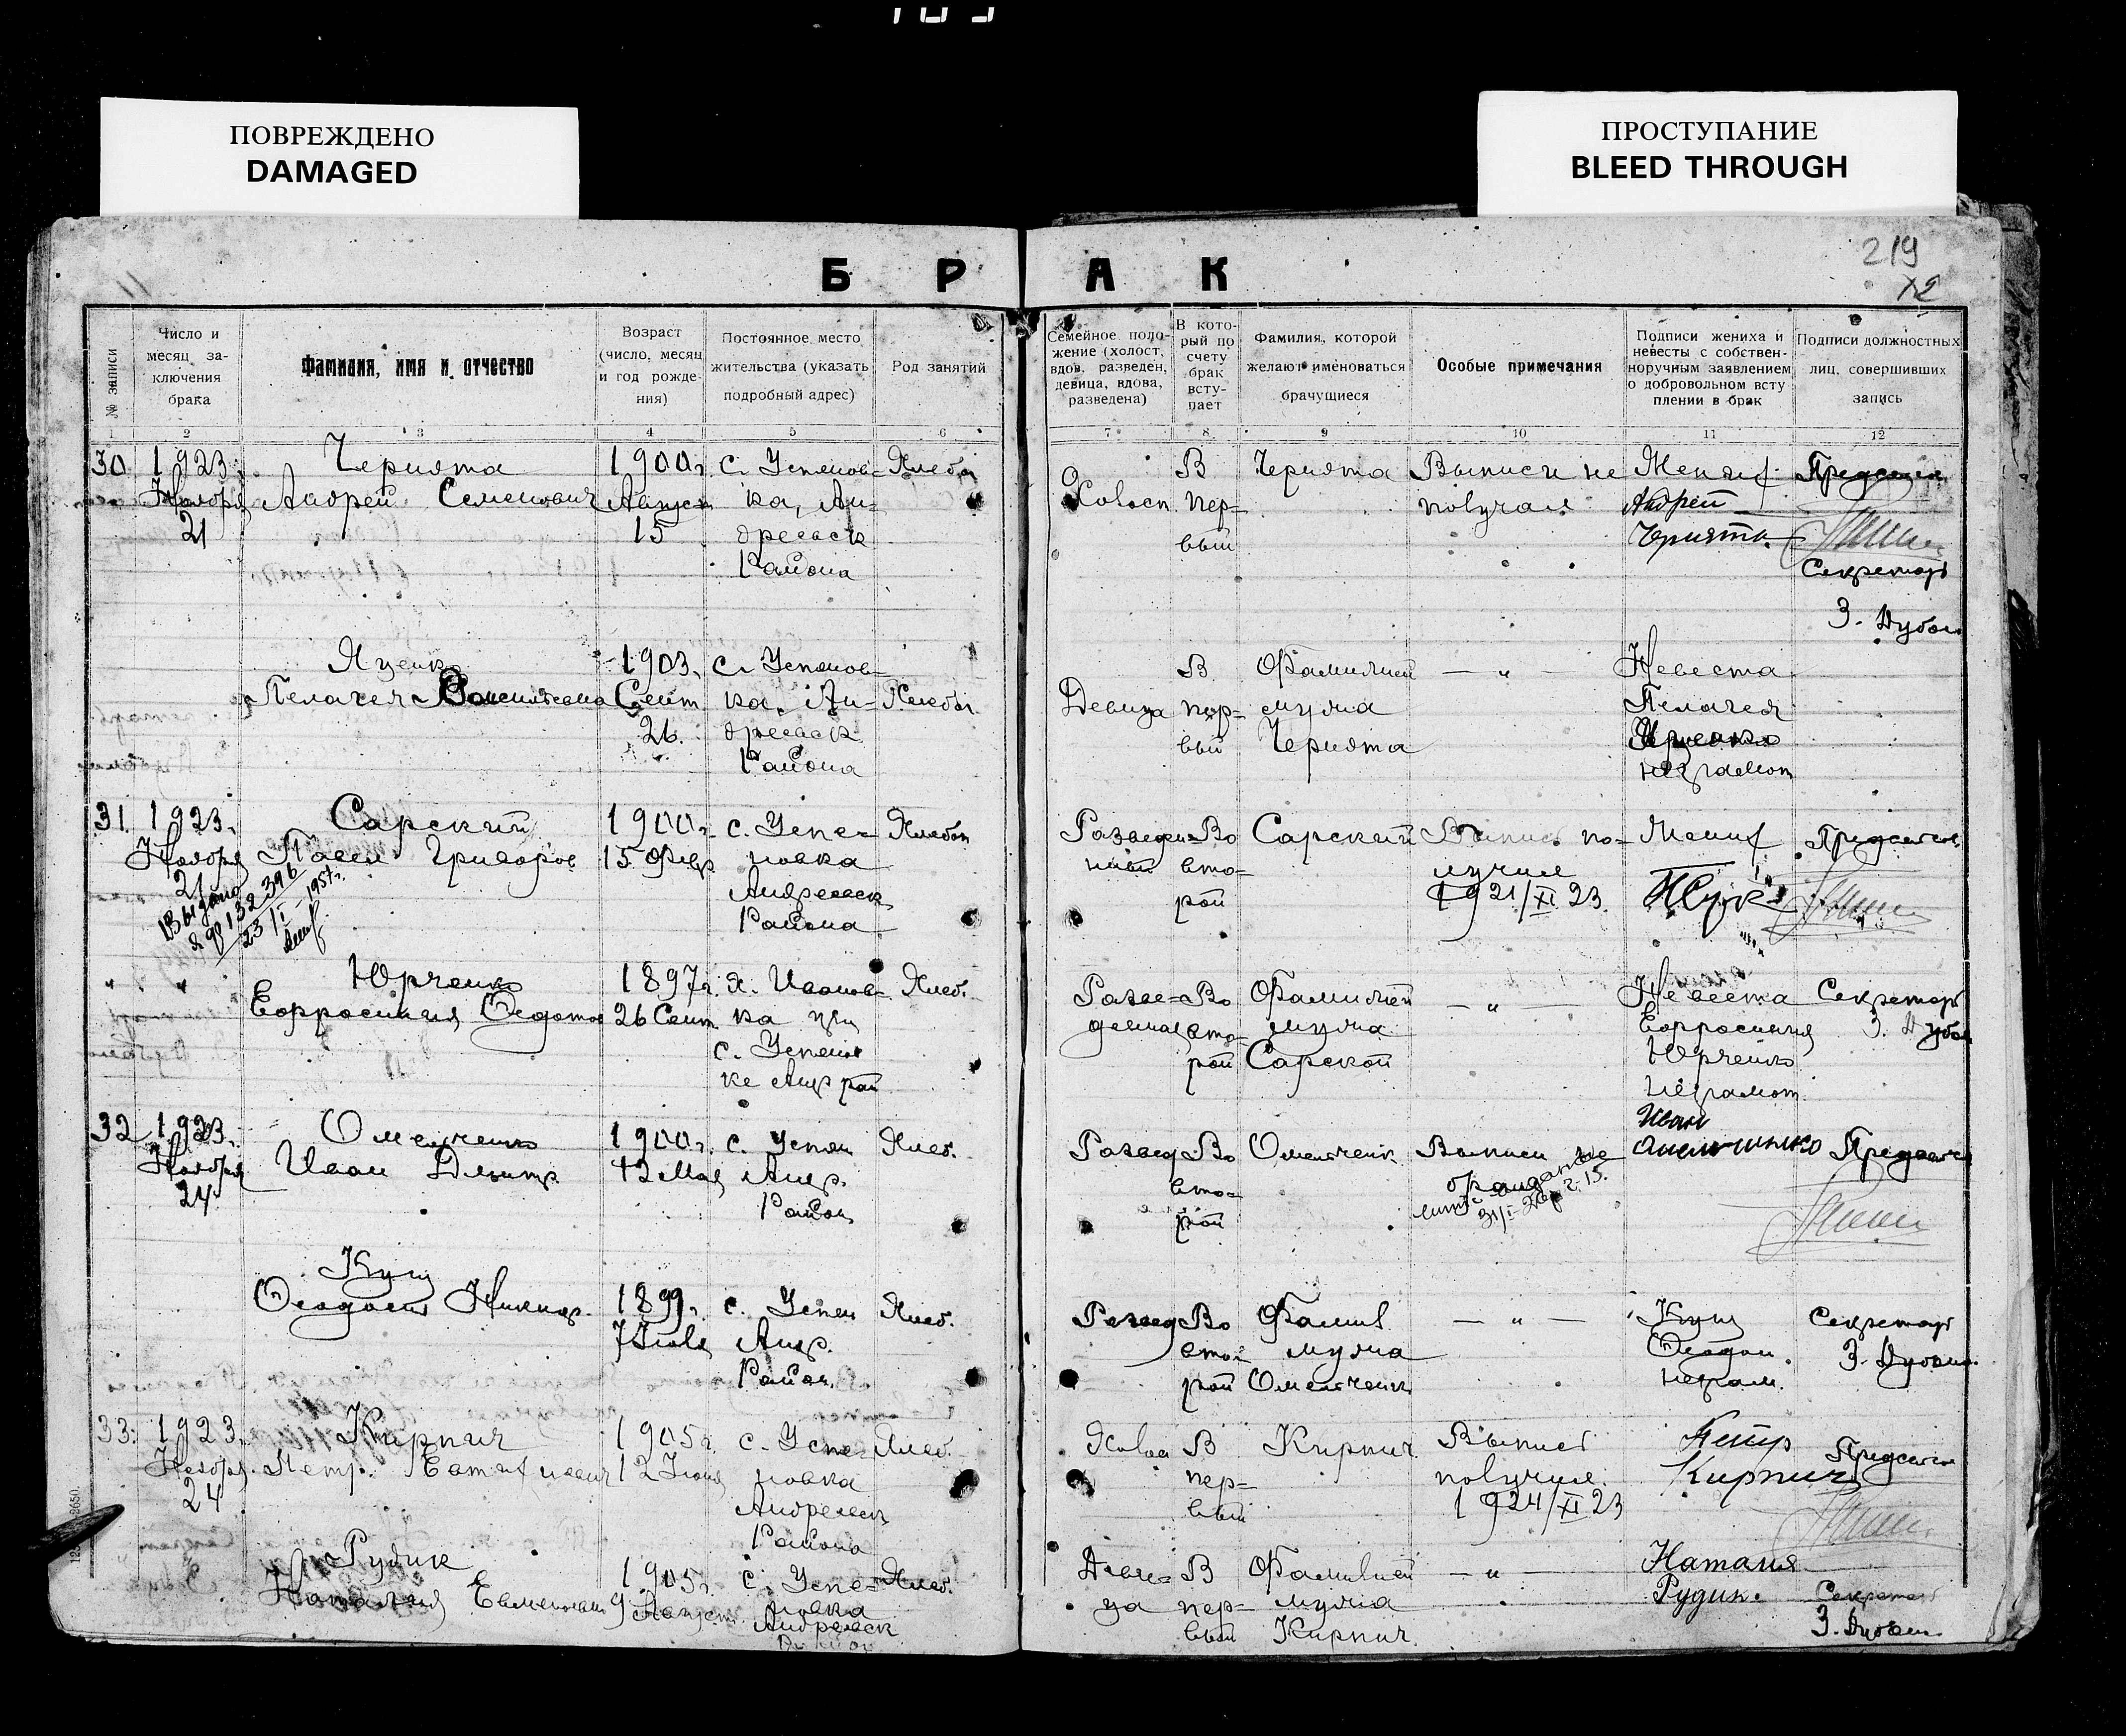 ПОВРЕЖДЕНО
DAMAGED
ПРОСТУПАНИЕ
BLEED THROUGH
219
Б Р А К
№ записи
Число и
месяц за-
ключения
брака
Фамилия, имя и отчество
Возраст
(число, месяц
и год рожде-
ния)
Постоянное место
жительства (указать
подробный адрес)
Род занятий
Семейное поло-
жение (холост,
вдов, разведен,
девица, вдова,
разведена)
В кото-
рый по
счету
брак
всту-
пает
Фамилия, которой
желают именоваться
брачущиеся
Особые примечания
Подписи жениха и
невесты с собствен-
норучным заявлением
о добровольном всту
плении в брак
Подписи должностных
лиц, совершивших
запись
1 2 3 4 5 6 7 8 9 10 11 12
30
1923
Ноября
21
Черията
Андрей Семенович
1900г.
Август
15
с. Успенов-
ка, Ан-
дреевск
Района
Хлебоп
Холост
В
пер-
вый
Черията
Выписи не
получал
Жених
Андрей
Секретарь
З.
Яценко
Пелагея Васильевна
1903.
Сент
26.
с. Успенов-
ка, Ан-
дреевск
Района
Хлебоп.
Девица
В
пер-
вый
Фамилией
мужа
Черията
— „ —
Невеста
Пелагея
Яценко
неграмот
31.
1923.
Ноября
21
Выдано
23/I-1957г.
Сарский
Павел Григоров
1900г.
15 Февр
с. Успе-
новка
Андреевск
Района
Хлебоп
Разведен-
ный
Во
вто-
рой
Сарский
Выпись по-
лучил
1921/XI 23.
Жених
„ „
Юрченко
Евросиния Федотов
1897г.
26 Сент.
х. Иванов-
ка при
с. Успенов
ке Андр рай
Хлеб.
Разве-
денная
Во
вто-
рой
Фамилией
мужа
Сарской
— „ —
Невеста
Евросиния
Юрченко
Неграмот.
Секретарь
З.
32
1923.
Ноября
24
Омельченко
Иван Дмитр
1900г.
12 Мая
с. Успен
Андр.
Район
Хлеб.
Развед
Во
вто-
рой
Омельченк
Выписи
Иван
Омельченко
Кущ
Феодосия Никиф.
1899.
7 Июля
с. Успен
Андр.
Район.
Хлеб.
Развед
Во
вто-
рой
Фамил
мужа
Омельченк
— „ —
Кущ
Феодос.
неграм.
Секретарь
З.
33.
1923.
Ноября
24
Кирпич
Петр
1905г.
12 Июня
с. Успе-
новка
Андреевск
Района
Хлеб.
Холос
В
пер-
вый
Кирпич
Выпись
получил.
1924/XI 23
Петр
Кирпич
Рудик
Наталия
1905г.
9 Август
с. Успе-
новка
Андреевск
Хлеб.
Деви-
ца
В
пер-
вый
Фамилией
мужа
Кирпич.
— „ —
Наталия
Рудик.
Секретарь
З.